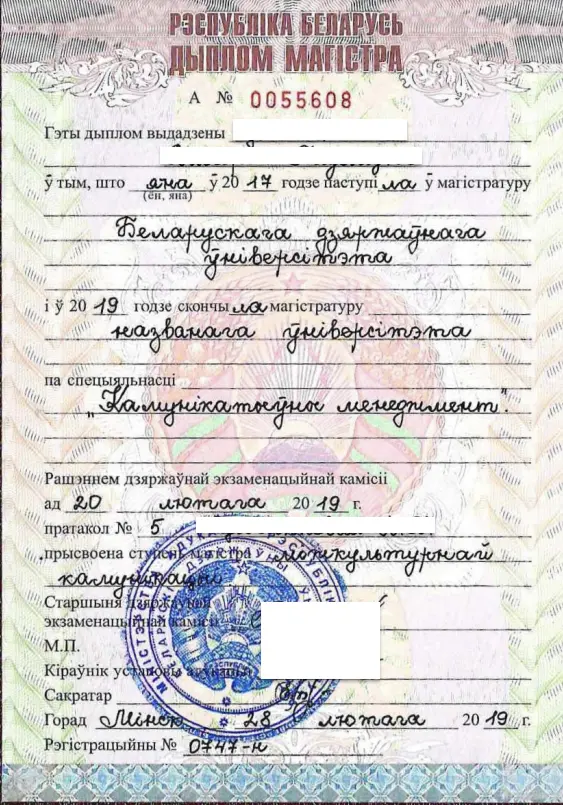 РЭСПУБЛІКА БЕЛАРУСЬ
ДЫПЛОМ МАГІСТРА
А № 0055608
Гэты дыплом выдадзены
ў тым, што яна ў 20 17 годзе паступі ла ў магістратуру
(ён, яна)
Беларускага дзяржаўнага
ўніверсітэта
і ў 20 19 годзе скончы ла магістратуру
названага ўніверсітэта
па спецыяльнасці
„Камунікатыўны менеджмент".
Рашэннем дзяржаўнай экзаменацыйнай камісіі
ад 20 лютага 20 19 г.
пратакол № 5
прысвоена ступень магістра міжкультурнай
камунікацыі
Старшыня дзяржаўнай
экзаменацыйнай камісіі
М.П.
Кіраўнік установы адукацыі
Сакратар
Горад Мінск 28 лютага 20 19 г.
Рэгістрацыйны № 0747-н